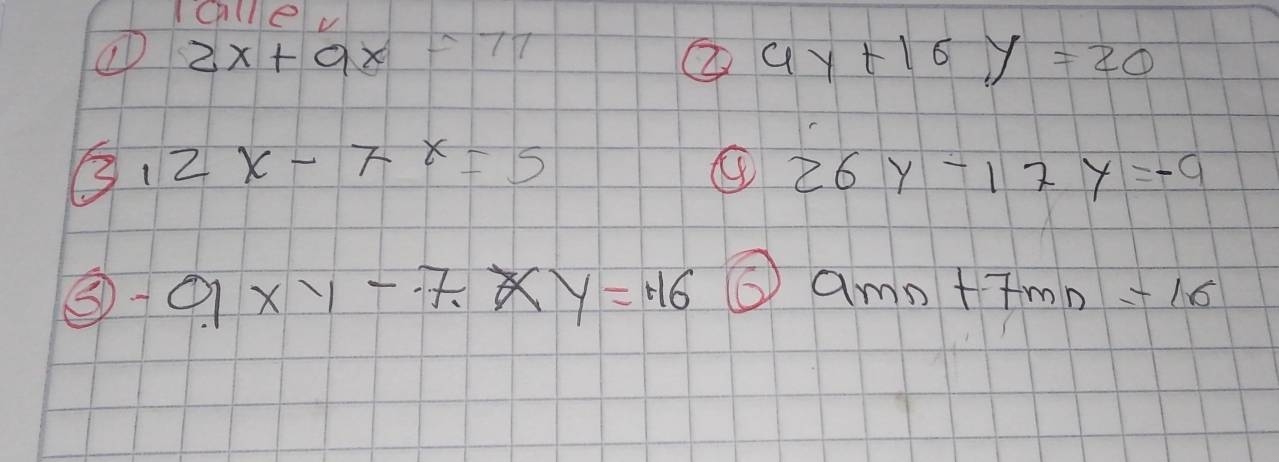 Taller
① 2x + 9x = 11
② 4y + 16y = 20
③ 12x - 7x = 5
④ 26y - 17y = -9
⑤ - 9xy - 7xy = +16
⑥ 9mn + 7mn = 16